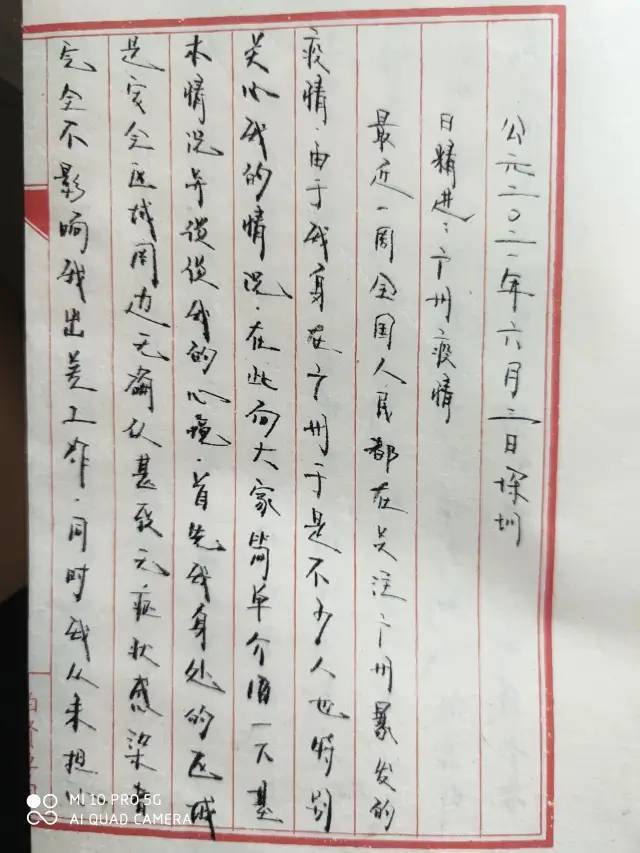 公元二〇二一年六月三日深圳
日精进：广州疫情
最近一周全国人民都在关注广州暴发的
疫情.由于我身在广州于是不少人也特别
关心我的情况.在此向大家简单介绍一下基
本情况并谈谈我的心境.首先我身处的区域
是安全区域周边无甚至无症状感染者
完全不影响我出差工作.同时我从来担心
MI 10 PRO 5G
AI QUAD CAMERA